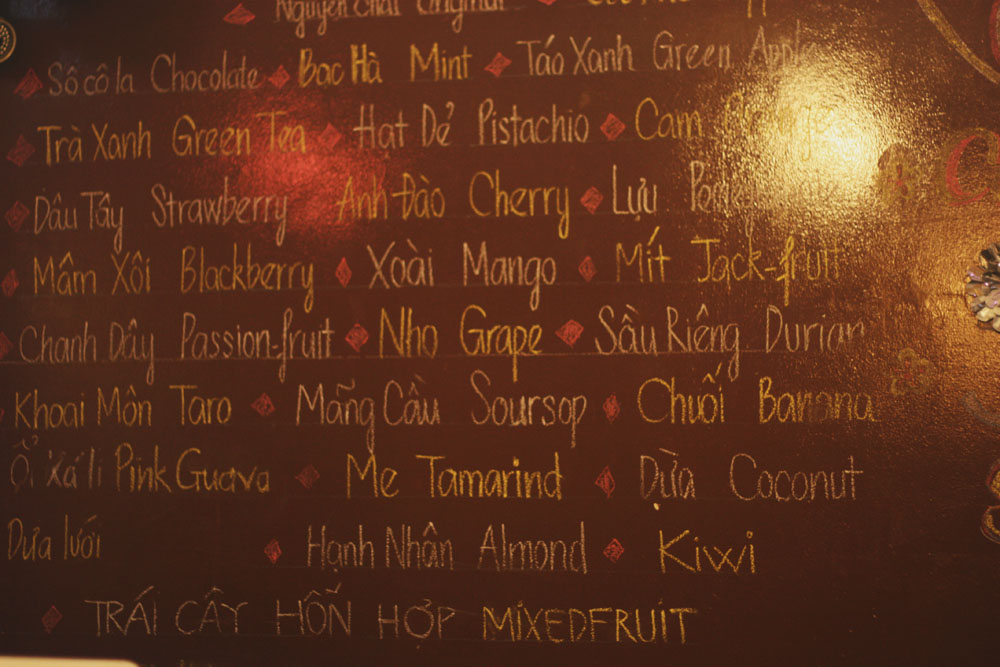 Nguyên Chất Original
Sô cô la Chocolate Bạc Hà Mint Táo Xanh Green Apple
Trà Xanh Green Tea Hạt Dẻ Pistachio Cam Orange
Dâu Tây Strawberry Anh Đào Cherry Lựu
Mâm Xôi Blackberry Xoài Mango Mít Jack-fruit
Chanh Dây Passion-fruit Nho Grape Sầu Riêng Durian
Khoai Môn Taro Mãng Cầu Soursop Chuối Banana
Ổi Xá lị Pink Guava Me Tamarind Dừa Coconut
Dưa lưới Hạnh Nhân Almond Kiwi
TRÁI CÂY HỖN HỢP MIXEDFRUIT